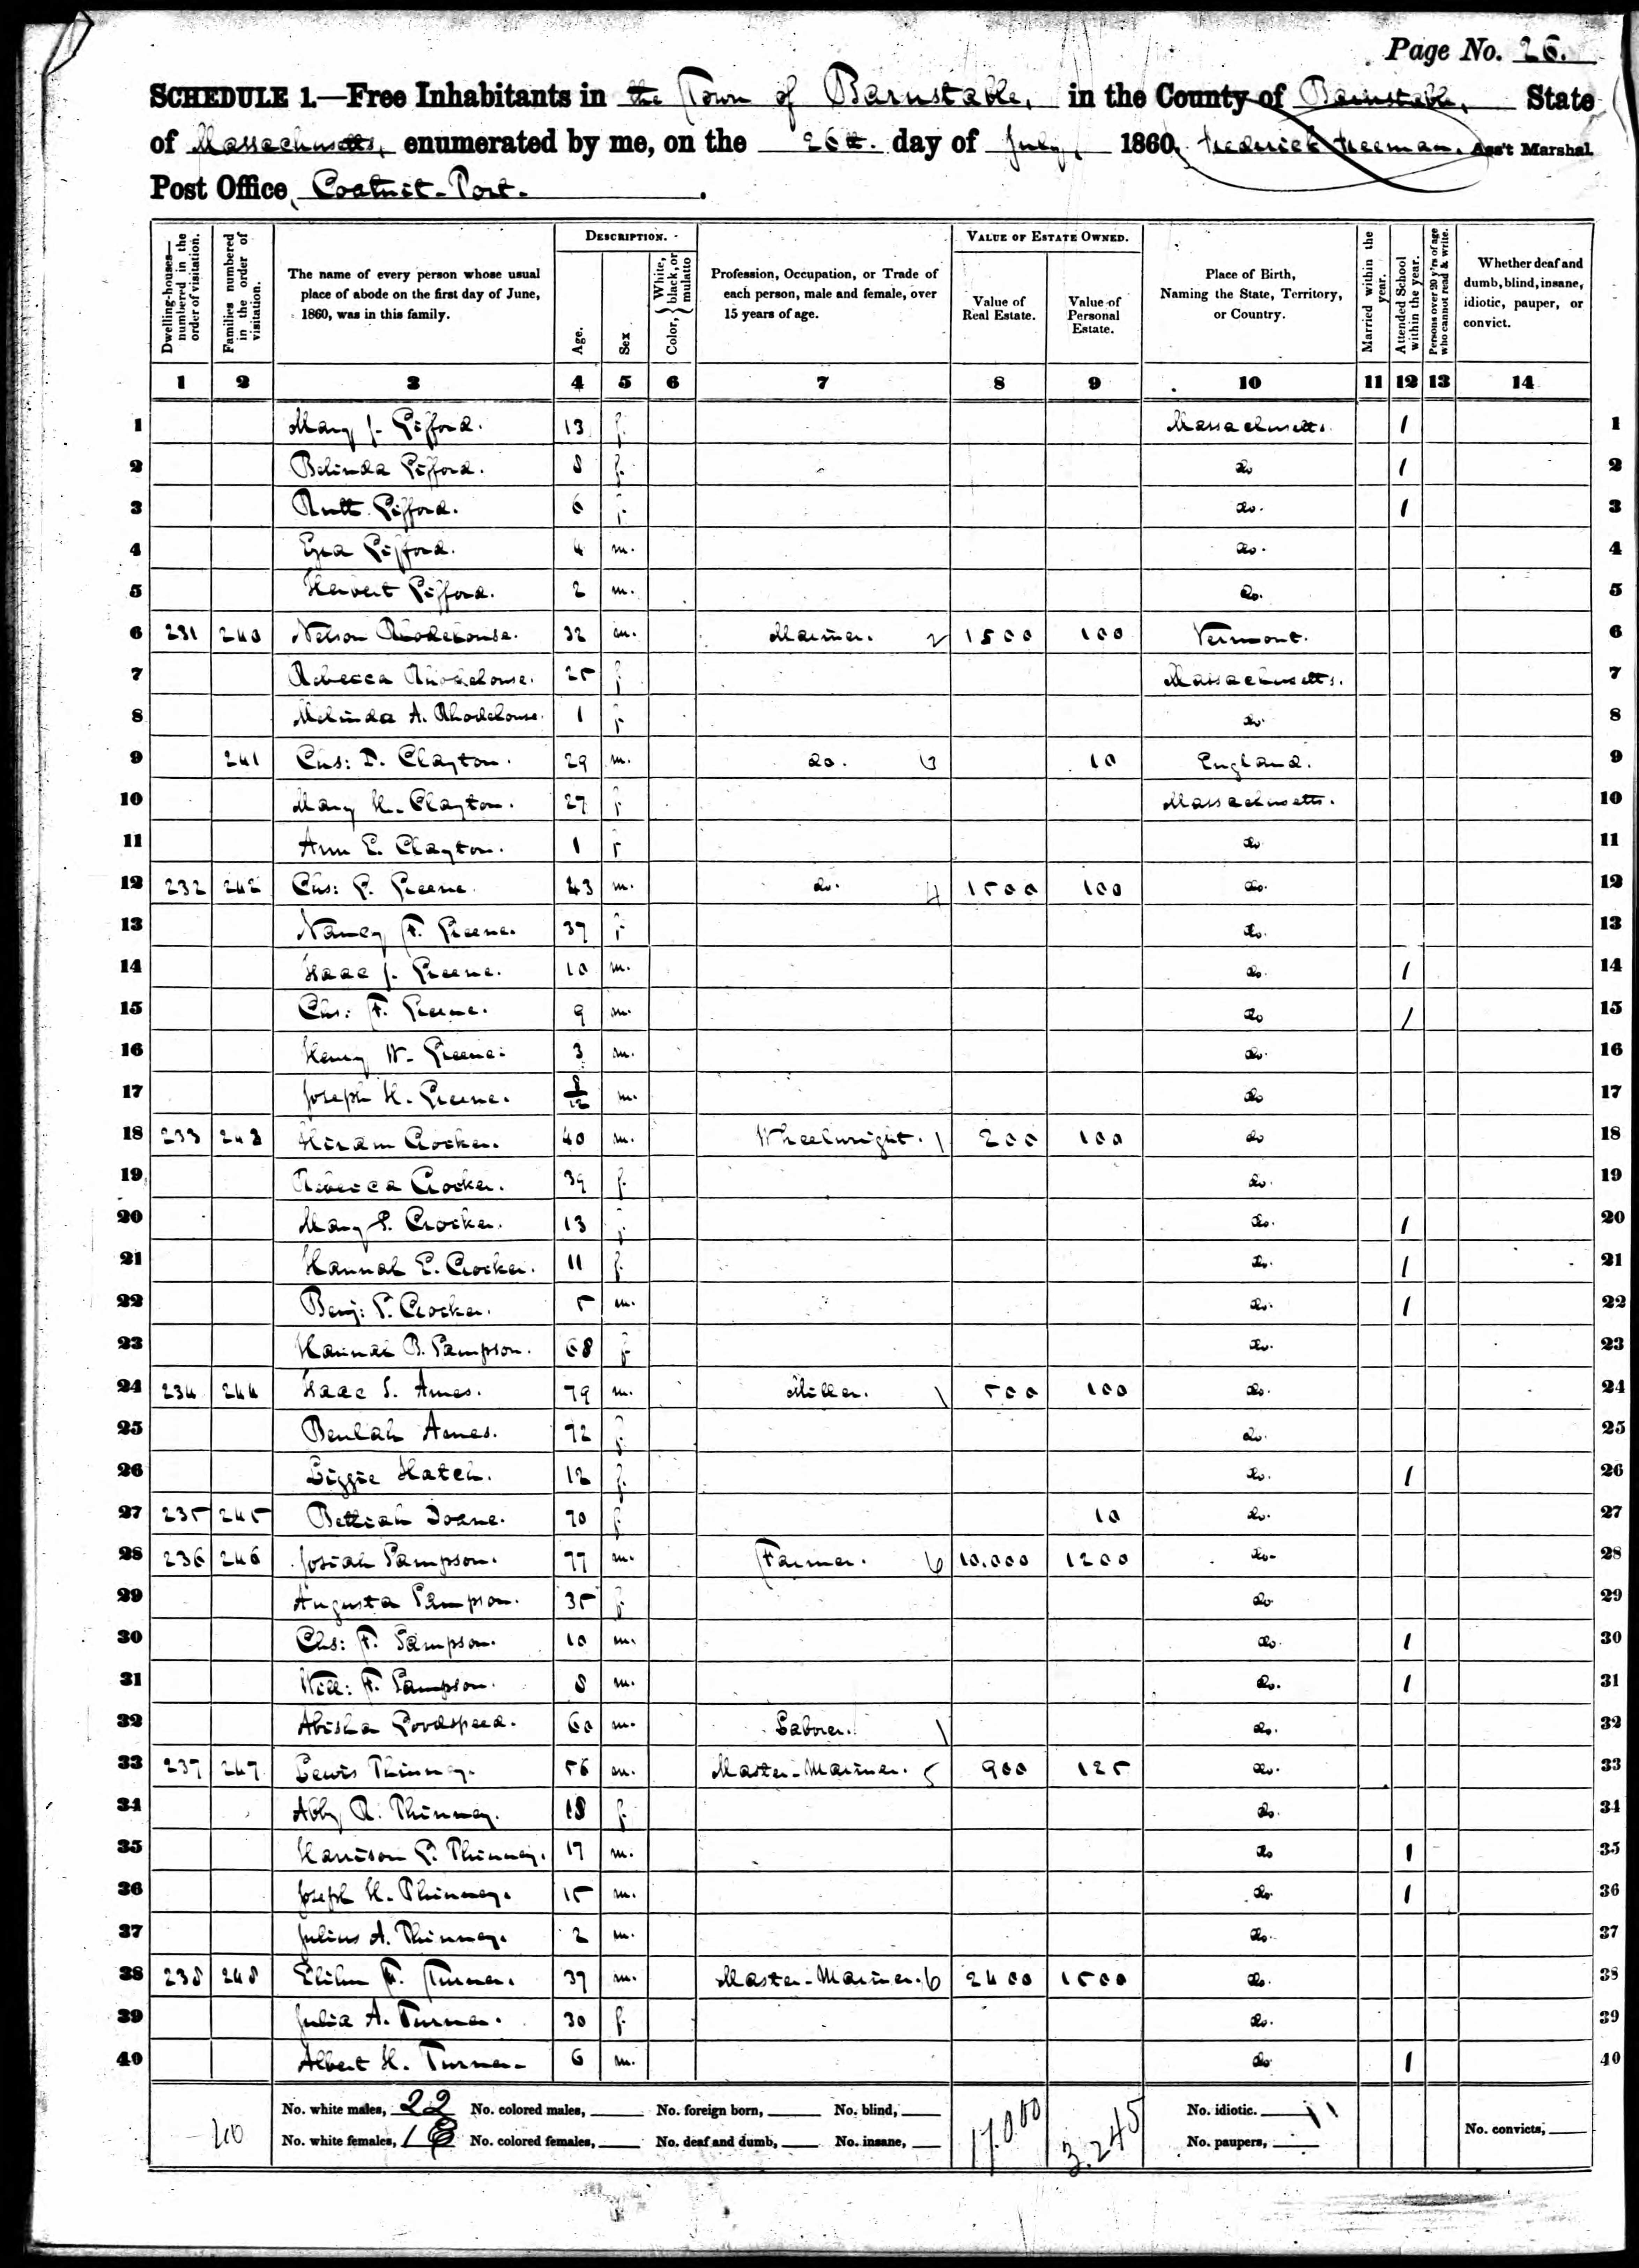 Page No. 26.
SCHEDULE 1.—Free Inhabitants in the Town of Barnstable, in the County of Barnstable, State
of Massachusetts, enumerated by me, on the 26th. day of July, 1860. Frederick Freeman. Ass't Marshal
Post Office, Cotuit-Port.
Dwelling-houses— numbered in the order of visitation.
Families numbered in the order of visitation.
The name of every person whose usual place of abode on the first day of June, 1860, was in this family.
DESCRIPTION.
Age.
Sex
Color, { White, black, or mulatto
Profession, Occupation, or Trade of each person, male and female, over 15 years of age.
VALUE OF ESTATE OWNED.
Value of Real Estate.
Value of Personal Estate.
Place of Birth, Naming the State, Territory, or Country.
Married within the year.
Attended School within the year.
Persons over 20 y'rs of age who cannot read & write.
Whether deaf and dumb, blind, insane, idiotic, pauper, or convict.
1 2 3 4 5 6 7 8 9 10 11 12 13 14
1 Mary J. Gifford. 13 f. Massachusetts. 1 1
2 Belinda Gifford. 8 f. do 1 2
3 Ruth Gifford. 6 f. do. 1 3
4 Ezra Gifford. 4 m. do. 4
5 Herbert Gifford. 2 m. do. 5
6 231 240 Nelson Rhodehouse. 32 m. Mariner. 2 1500 100 Vermont. 6
7 Rebecca Rhodehouse. 25 f Massachusetts. 7
8 Melinda A. Rhodehouse. 1 f. do. 8
9 241 Chs: D. Clayton. 29 m. do. 3 10 England. 9
10 Mary H. Clayton. 27 f Massachusetts. 10
11 Ann E. Clayton. 1 f do 11
12 232 242 Chs: G. Greene. 43 m. do. 4 1500 100 do. 12
13 Nancy F. Greene. 37 f do. 13
14 Isaac J. Greene. 10 m. do. 1 14
15 Chs: F. Greene. 9 m. do 1 15
16 Henry W. Greene. 3 m. do. 16
17 Joseph H. Greene. 8/12 m. do 17
18 233 243 Hiram Crocker. 40 m. Wheelwright. 1 200 100 do 18
19 Rebecca Crocker. 39 f. do. 19
20 Mary S. Crocker. 13 f do. 1 20
21 Hannah E. Crocker. 11 f. do. 1 21
22 Benj: S. Crocker. 5 m. do. 1 22
23 Hannah B. Sampson. 68 f do. 23
24 234 244 Isaac S. Ames. 79 m. Miller. 1 500 100 do. 24
25 Beulah Ames. 72 f. do. 25
26 Lizzie Hatch. 12 f. do. 1 26
27 235 245 Bethiah Doane. 70 f 10 do. 27
28 236 246 Josiah Sampson. 77 m. Farmer. 6 10.000 1200 do. 28
29 Augusta Sampson. 35 f do 29
30 Chs: F. Sampson. 10 m. do. 1 30
31 Will: F. Sampson. 8 m. do. 1 31
32 Abisha Goodspeed. 60 m. Laborer. 1 do. 32
33 237 247 Lewis Phinney. 56 m. Master-Mariner. 5 900 125 do. 33
34 Abby R. Phinney. 18 f. do. 34
35 Harrison G. Phinney. 17 m. do 1 35
36 Joseph H. Phinney. 15 m. do. 1 36
37 Julius A. Phinney. 2 m. do. 37
38 238 248 Elihu F. Turner. 37 m. Master-Mariner. 6 2400 1500 do. 38
39 Julia A. Turner. 30 f. do. 39
40 Albert H. Turner. 6 m. do 1 40
No. white males, 22 No. colored males, No. foreign born, No. blind, 17.000 3.245 No. idiotic. 11
40 No. white females, 18 No. colored females, No. deaf and dumb, No. insane, No. paupers, No. convicts,